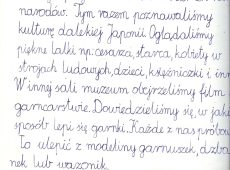 narodów. Tym razem poznawaliśmy
kulturę dalekiej Japonii. Oglądaliśmy
piękne lalki np. cesarza, starca, kobiety w
strojach ludowych, dzieci, księżniczki i inn
W innej sali muzeum obejrzeliśmy film
garncarstwie. Dowiedzieliśmy się, w jaki
sposób lepi się garnki. Każde z nas próbow
To ulepić z modeliny garnuszek, dzba
nek lub wazonik.